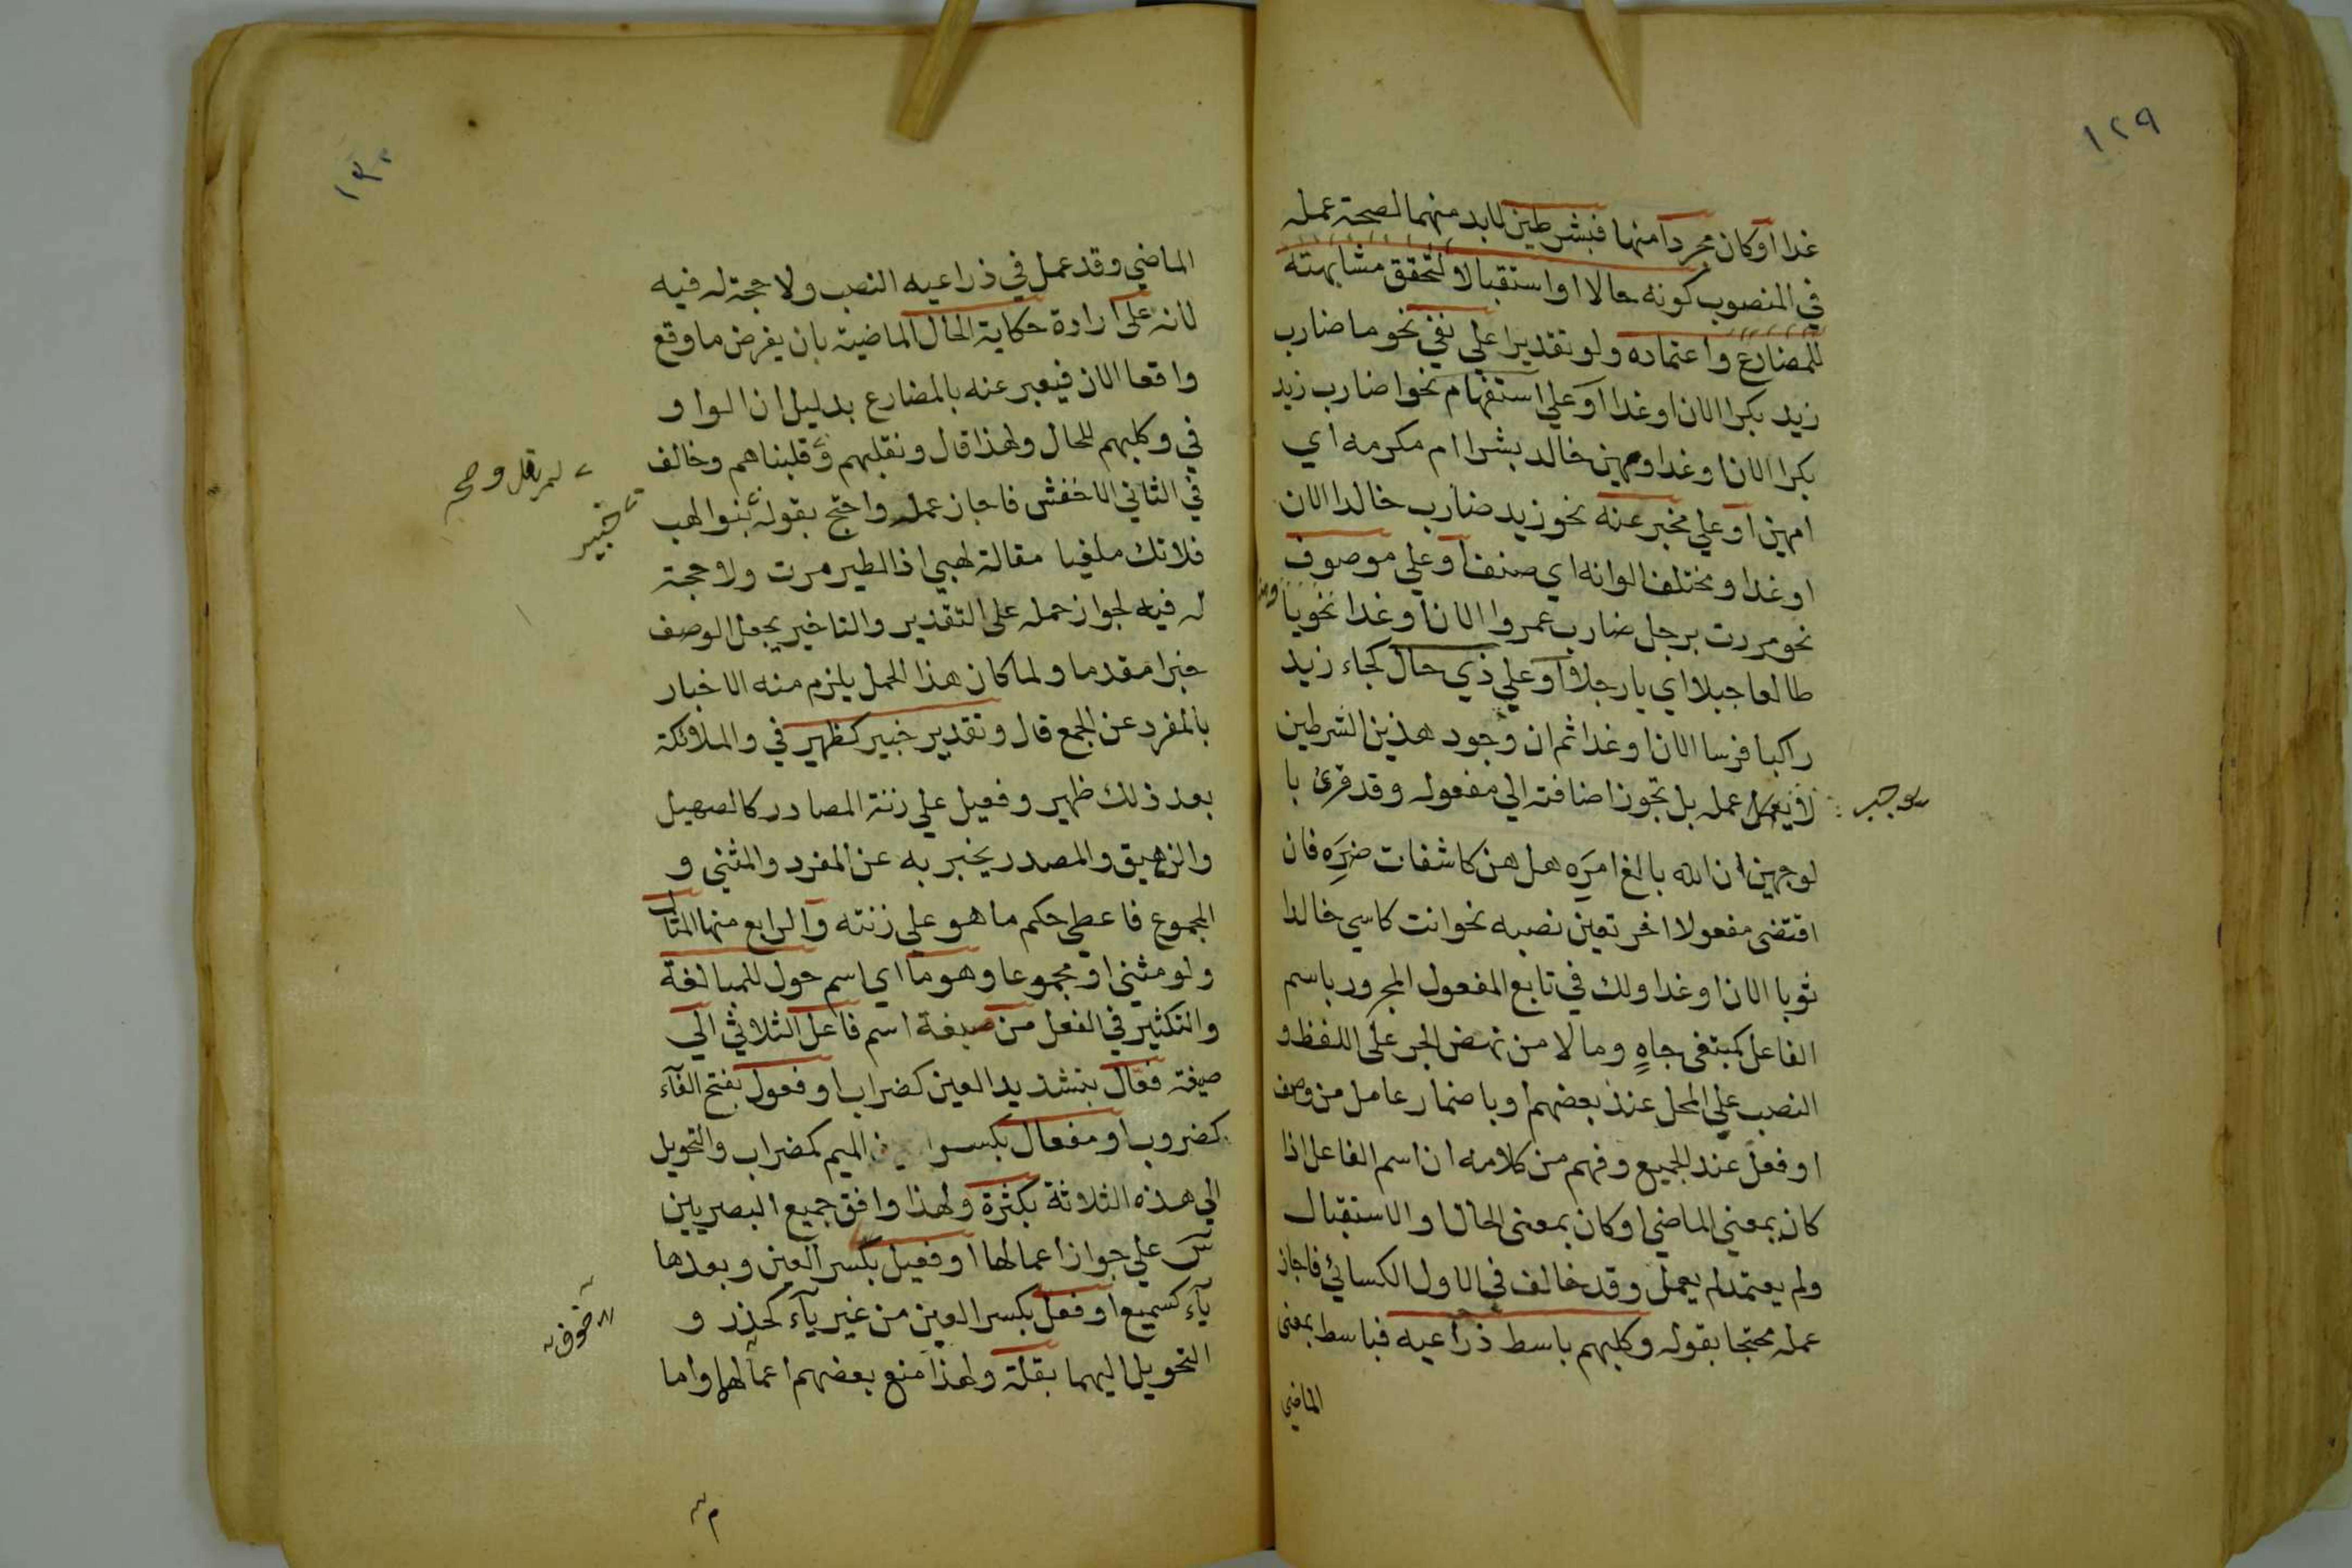 ١٢٩
غدا او كان مجردا منها فبشرطين لابد منهما لصحة عمله
في المنصوب كونه حالا او استقبالا لتحقق مشابهته
للمضارع واعتماده ولو تقديرا علي نفي نحو ما ضارب
زيد بكرا الان او غدا او علي استفهام نحو اضارب زيد
بكرا الان او غدا ومهين خالد بشرا ام مكرمه اي
امهين او علي مخبر عنه نحو زيد ضارب خالدا الان
او غدا ومختلف الوانه اي صنف او علي موصوف
نحو مررت برجل ضارب عمروا الان او غدا نحو يا
طالعا جبلا اي يا رجلا او علي ذي حال كجاء زيد
راكبا فرسا الان او غدا ثم ان وجود هذين الشرطين
لا يوجب عمله بل تجوز اضافته الي مفعوله وقد قرئ با
لوجهين ان الله بالغ امره هل هن كاشفات ضره فان
اقتضى مفعولا اخر تعين نصبه نحو انت كاسي خالدا
ثوبا الان او غدا ولك في تابع المفعول المجرور باسم
الفاعل كمبتغى جاهٍ ومالا من نهض الجر على اللفظ و
النصب علي المحل عند بعضهم او باضمار عامل من وصف
او فعل عند الجميع وفهم من كلامه ان اسم الفاعل اذا
كان بمعني الماضي او كان بمعنى الحال او الاستقبال
ولم يعتمد لم يعمل وقد خالف في الاول الكسائي فاجاز
عمله محتجا بقوله وكلبهم باسط ذراعيه فباسط بمعنى
الماضي
يوجب
١٣٠
الماضي وقد عمل في ذراعيه النصب ولا حجة له فيه
لانه على ارادة حكاية الحال الماضية بان يفرض ما وقع
واقعا الان فيعبر عنه بالمضارع بدليل ان الواو
في وكلبهم للحال ولهذا قال ونقلبهم وقلبناهم وخالف
في الثاني الاخفش فاجاز عمله واحتج بقوله بنوا لهب
فلا تك ملغيا مقالة لهبي اذا الطير مرت ولا حجة
له فيه لجواز حمله على التقدير والتاخير بجعل الوصف
خبرا مقدما ولما كان هذا الحمل يلزم منه الاخبار
بالمفرد عن الجمع قال وتقدير خبير كظهير في والملائكة
بعد ذلك ظهير وفعيل علي زنة المصادر كالصهيل
والزهيق والمصدر يخبر به عن المفرد والمثنى و
المجموع فاعطي حكم ما هو علي زنته والرابع منها المثال
ولو مثنى او مجموعا وهو ما اي اسم حول للمبالغة
والتكثير في الفعل من صيغة اسم فاعل الثلاثي الي
صيغة فعّال بتشديد العين كضراب او فعول بفتح الفاء
كضروب او مفعال بكسر الميم كمضراب والتحويل
الي هذه الثلاثة بكثرة ولهذا وافق جميع البصريين
س علي جواز اعمالها او فعيل بكسر العين وبعدها
ياء كسميع او فعل بكسر العين من غير ياء كحذر و
التحويل اليهما بقلة ولهذا منع بعضهم اعمالهما واما
لم يقل وصح
خبير